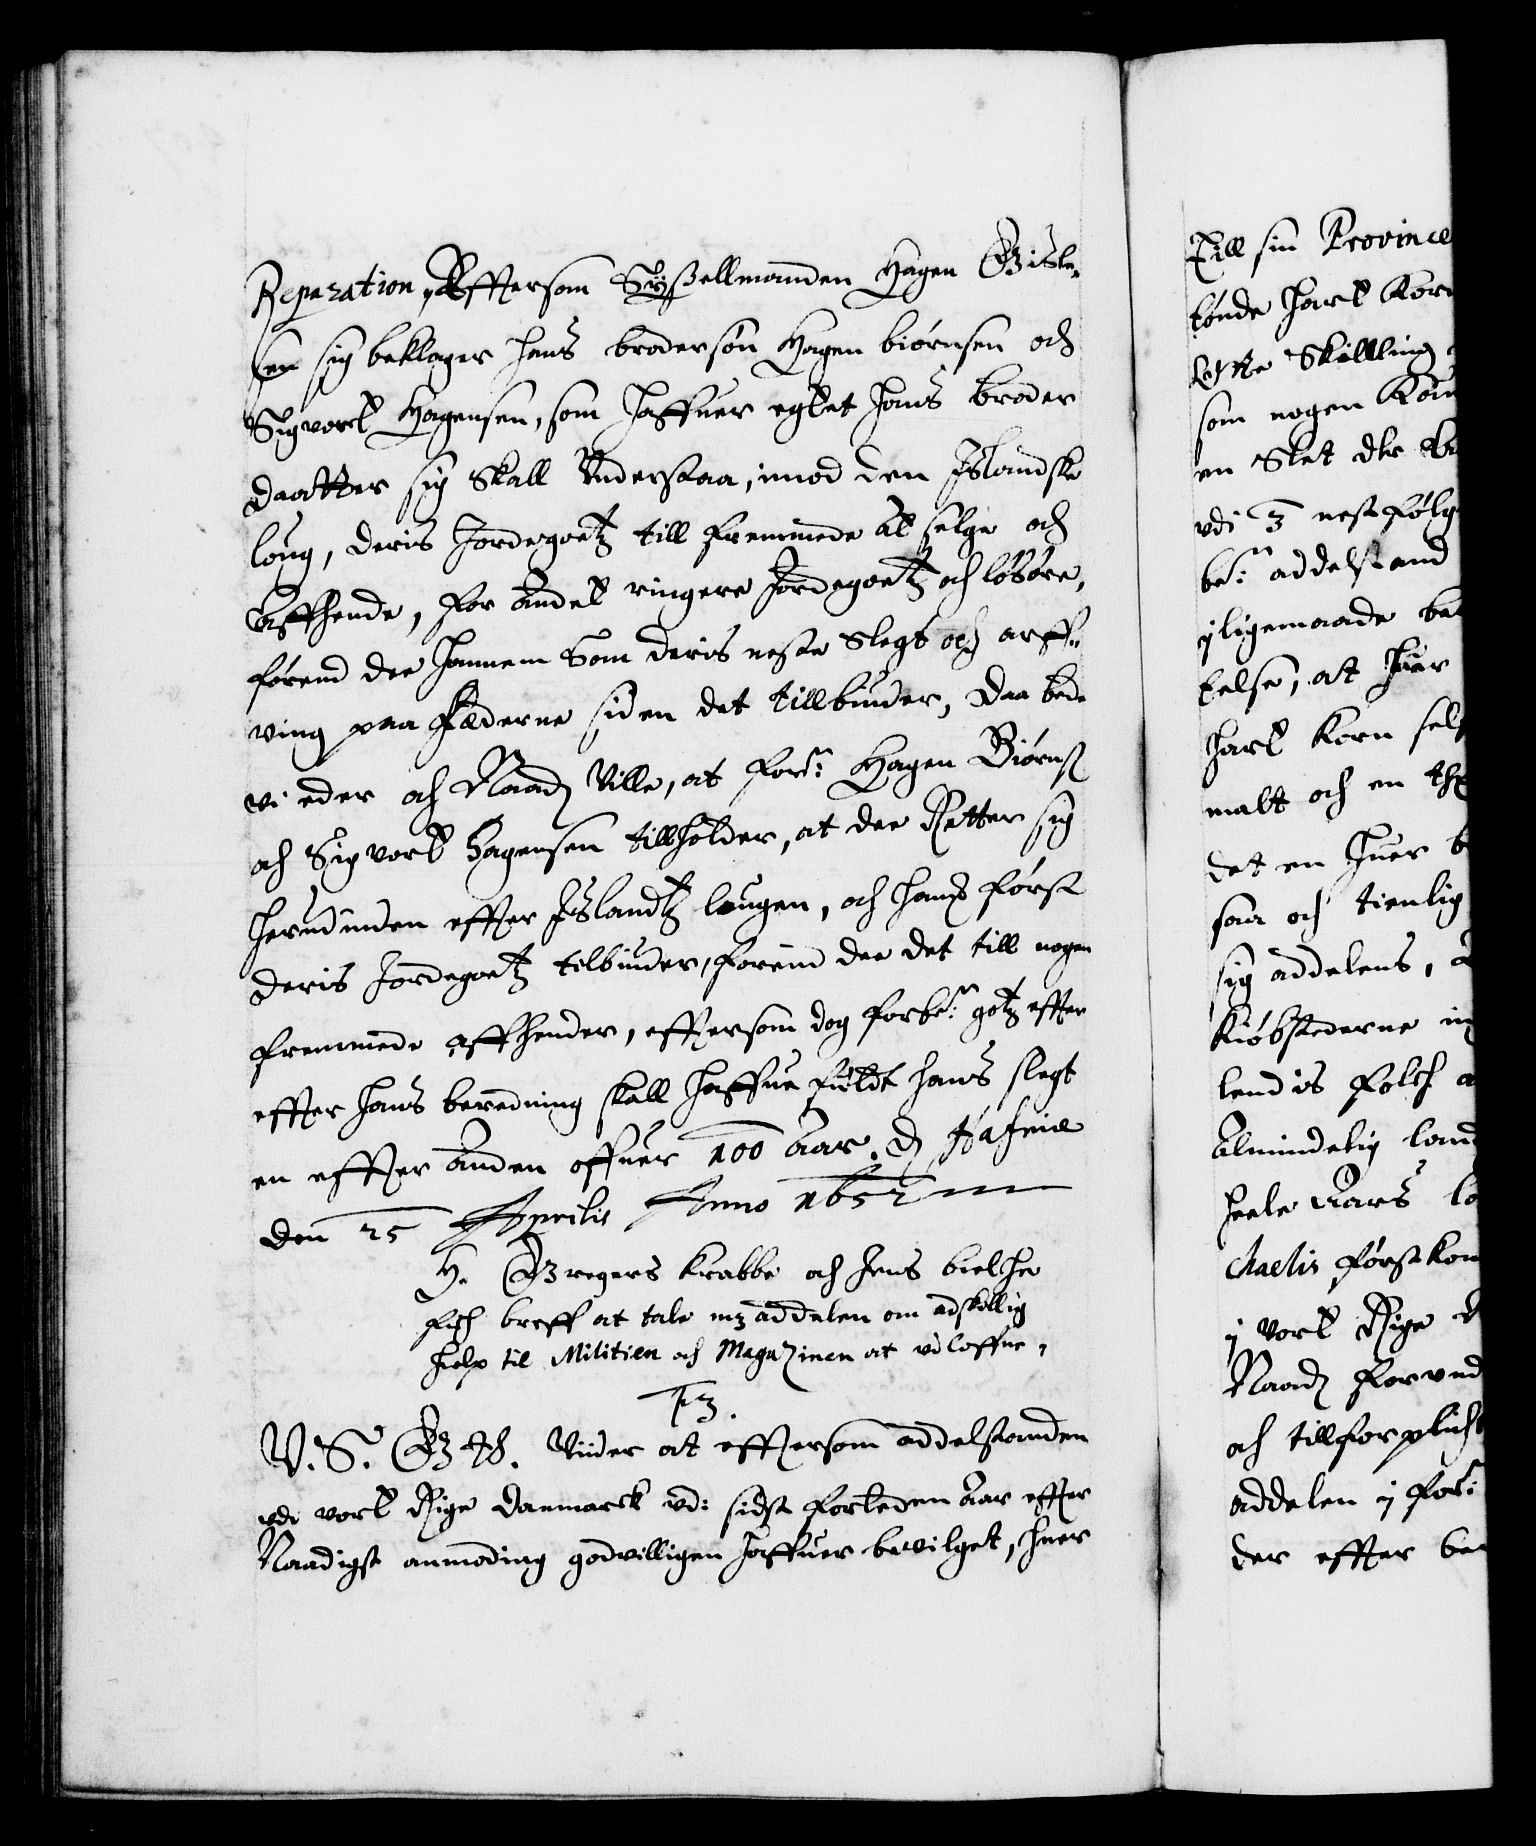 Reparation, Effterson Sÿßellmanden Hagen Gisle-
sen sig beklager hans brodersøn Hagen biørnsen och
Sigvort Hagensen, som haffuer egtet hans broder
daatter sig skall Understaa, imod den Islandske
loug, deris Jordegoetz till fremmede at selge och
affhende, for andet ringere Jordegoetz och løsøre,
førend dee hannem som deris neste slegt och arff-
ving paa Fæderne siden det tillbinder, Daa bede
vi eder och Naad: Ville, at forne: Hagen Biørns:
och Sigvort Hagensen tillholder, at dee Retter sig
herudinden effter Islandtz lougen, och hans først
deris Jordegoetz tilbinder, førind dee det till nogen
fremmede affhender, efftersom dog forbene: gotz effter
effter hans beredning skall haffue fuldt hans slegt
en effter anden offuer 100 Aar. d: Hafniæ
den 25 Aprilis Anno 1652
H. Gregers Krabbe och Jens bielche
fich breff at tale mz addelen om adskellig
hielp til Militien och Magazinen at vdloffue,
F3.
V. S. G T. Viider at efftersom addelstanden
vdi vort Rige Danmarck vdi sidst forleden Aar effter
Naadigst anmoding godvilligen haffuer bevilget, huer
Till sin Province
tønde hart Korn
som nogen
en Slet dlr
vdi 3 nestfølg
bene: addelstand
iligemaade be
telse, at huer
hart Korn sel
malt och en
det en huer
saa och tienlig
sig addelens,
Kiøbstederne in
lendis folch a
Almindelig land
heele Aars lø
chaelis førstkom
i vort Rige
Naad: forund
och tillforplicht
addelen i forne:
der effter be